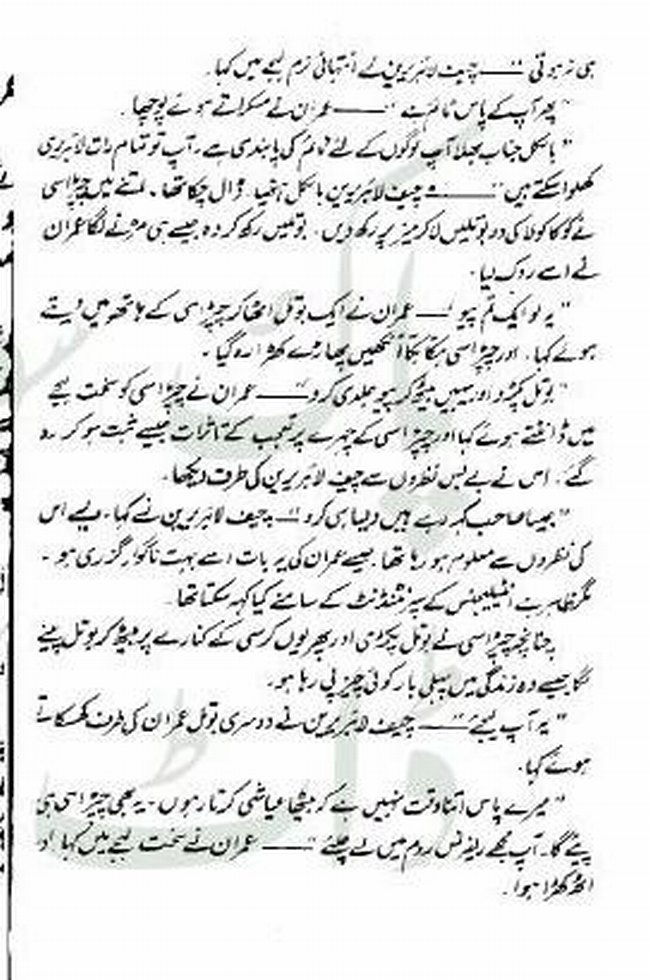 ہی نہ ہوتی "——— چیف لائبریرین نے انتہائی نرم لہجے میں کہا۔
" پھر آپ کے پاس ٹائم ہے "——— عمران نے مسکراتے ہوئے پوچھا۔
" بالکل جناب بھلا آپ لوگوں کے لئے ٹائم کی پابندی ہے، آپ تو تمام رات لائبریری
کھلوا سکتے ہیں "——— چیف لائبریرین بالکل ہتھیار ڈال چکا تھا۔ اتنے میں چپڑاسی
نے کوکا کولا کی دو بوتلیں لا کر میز پر رکھ دیں۔ بوتلیں رکھ کر وہ جیسے ہی مڑنے لگا عمران
نے اسے روک لیا۔
" یہ لو ایک تم پیو "——— عمران نے ایک بوتل اٹھا کر چپڑاسی کے ہاتھ میں دیتے
ہوئے کہا۔ اور چپڑاسی ہکا بکا آنکھیں پھاڑے کھڑا رہ گیا۔
" بوتل پکڑو اور یہیں بیٹھ کر پیو جلدی کرو "——— عمران نے چپڑاسی کو سخت لہجے
میں ڈانٹتے ہوئے کہا اور چپڑاسی کے چہرے پر تعجب کے تاثرات جیسے ثبت ہو کر رہ
گئے۔ اس نے بے بس نظروں سے چیف لائبریرین کی طرف دیکھا۔
" جیسا صاحب کہہ رہے ہیں ویسا ہی کرو "— چیف لائبریرین نے کہا۔ ویسے اس
کی نظروں سے معلوم ہو رہا تھا۔ جیسے عمران کی یہ بات اسے بہت ناگوار گزری ہو۔
مگر ظاہر ہے انٹیلیجنس کے سپرنٹنڈنٹ کے سامنے کیا کہہ سکتا تھا۔
چنانچہ چپڑاسی نے بوتل پکڑی اور پھر یوں کرسی کے کنارے پر بیٹھ کر بوتل پینے
لگا جیسے وہ زندگی میں پہلی بار کوئی چیز پی رہا ہو۔
" یہ آپ لیجئے "——— چیف لائبریرین نے دوسری بوتل عمران کی طرف کھسکاتے
ہوئے کہا۔
" میرے پاس اتنا وقت نہیں ہے کہ بیٹھا عیاشی کرتا رہوں۔ یہ بھی چپڑاسی ہی
پیئے گا۔ آپ مجھے ریفرنس روم میں لے چلئے "——— عمران نے سخت لہجے میں کہا اور
اٹھ کھڑا ہوا۔